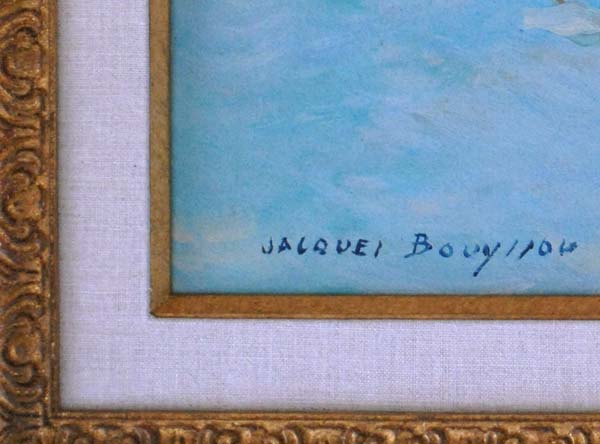 JACQUES BOUYSSOU